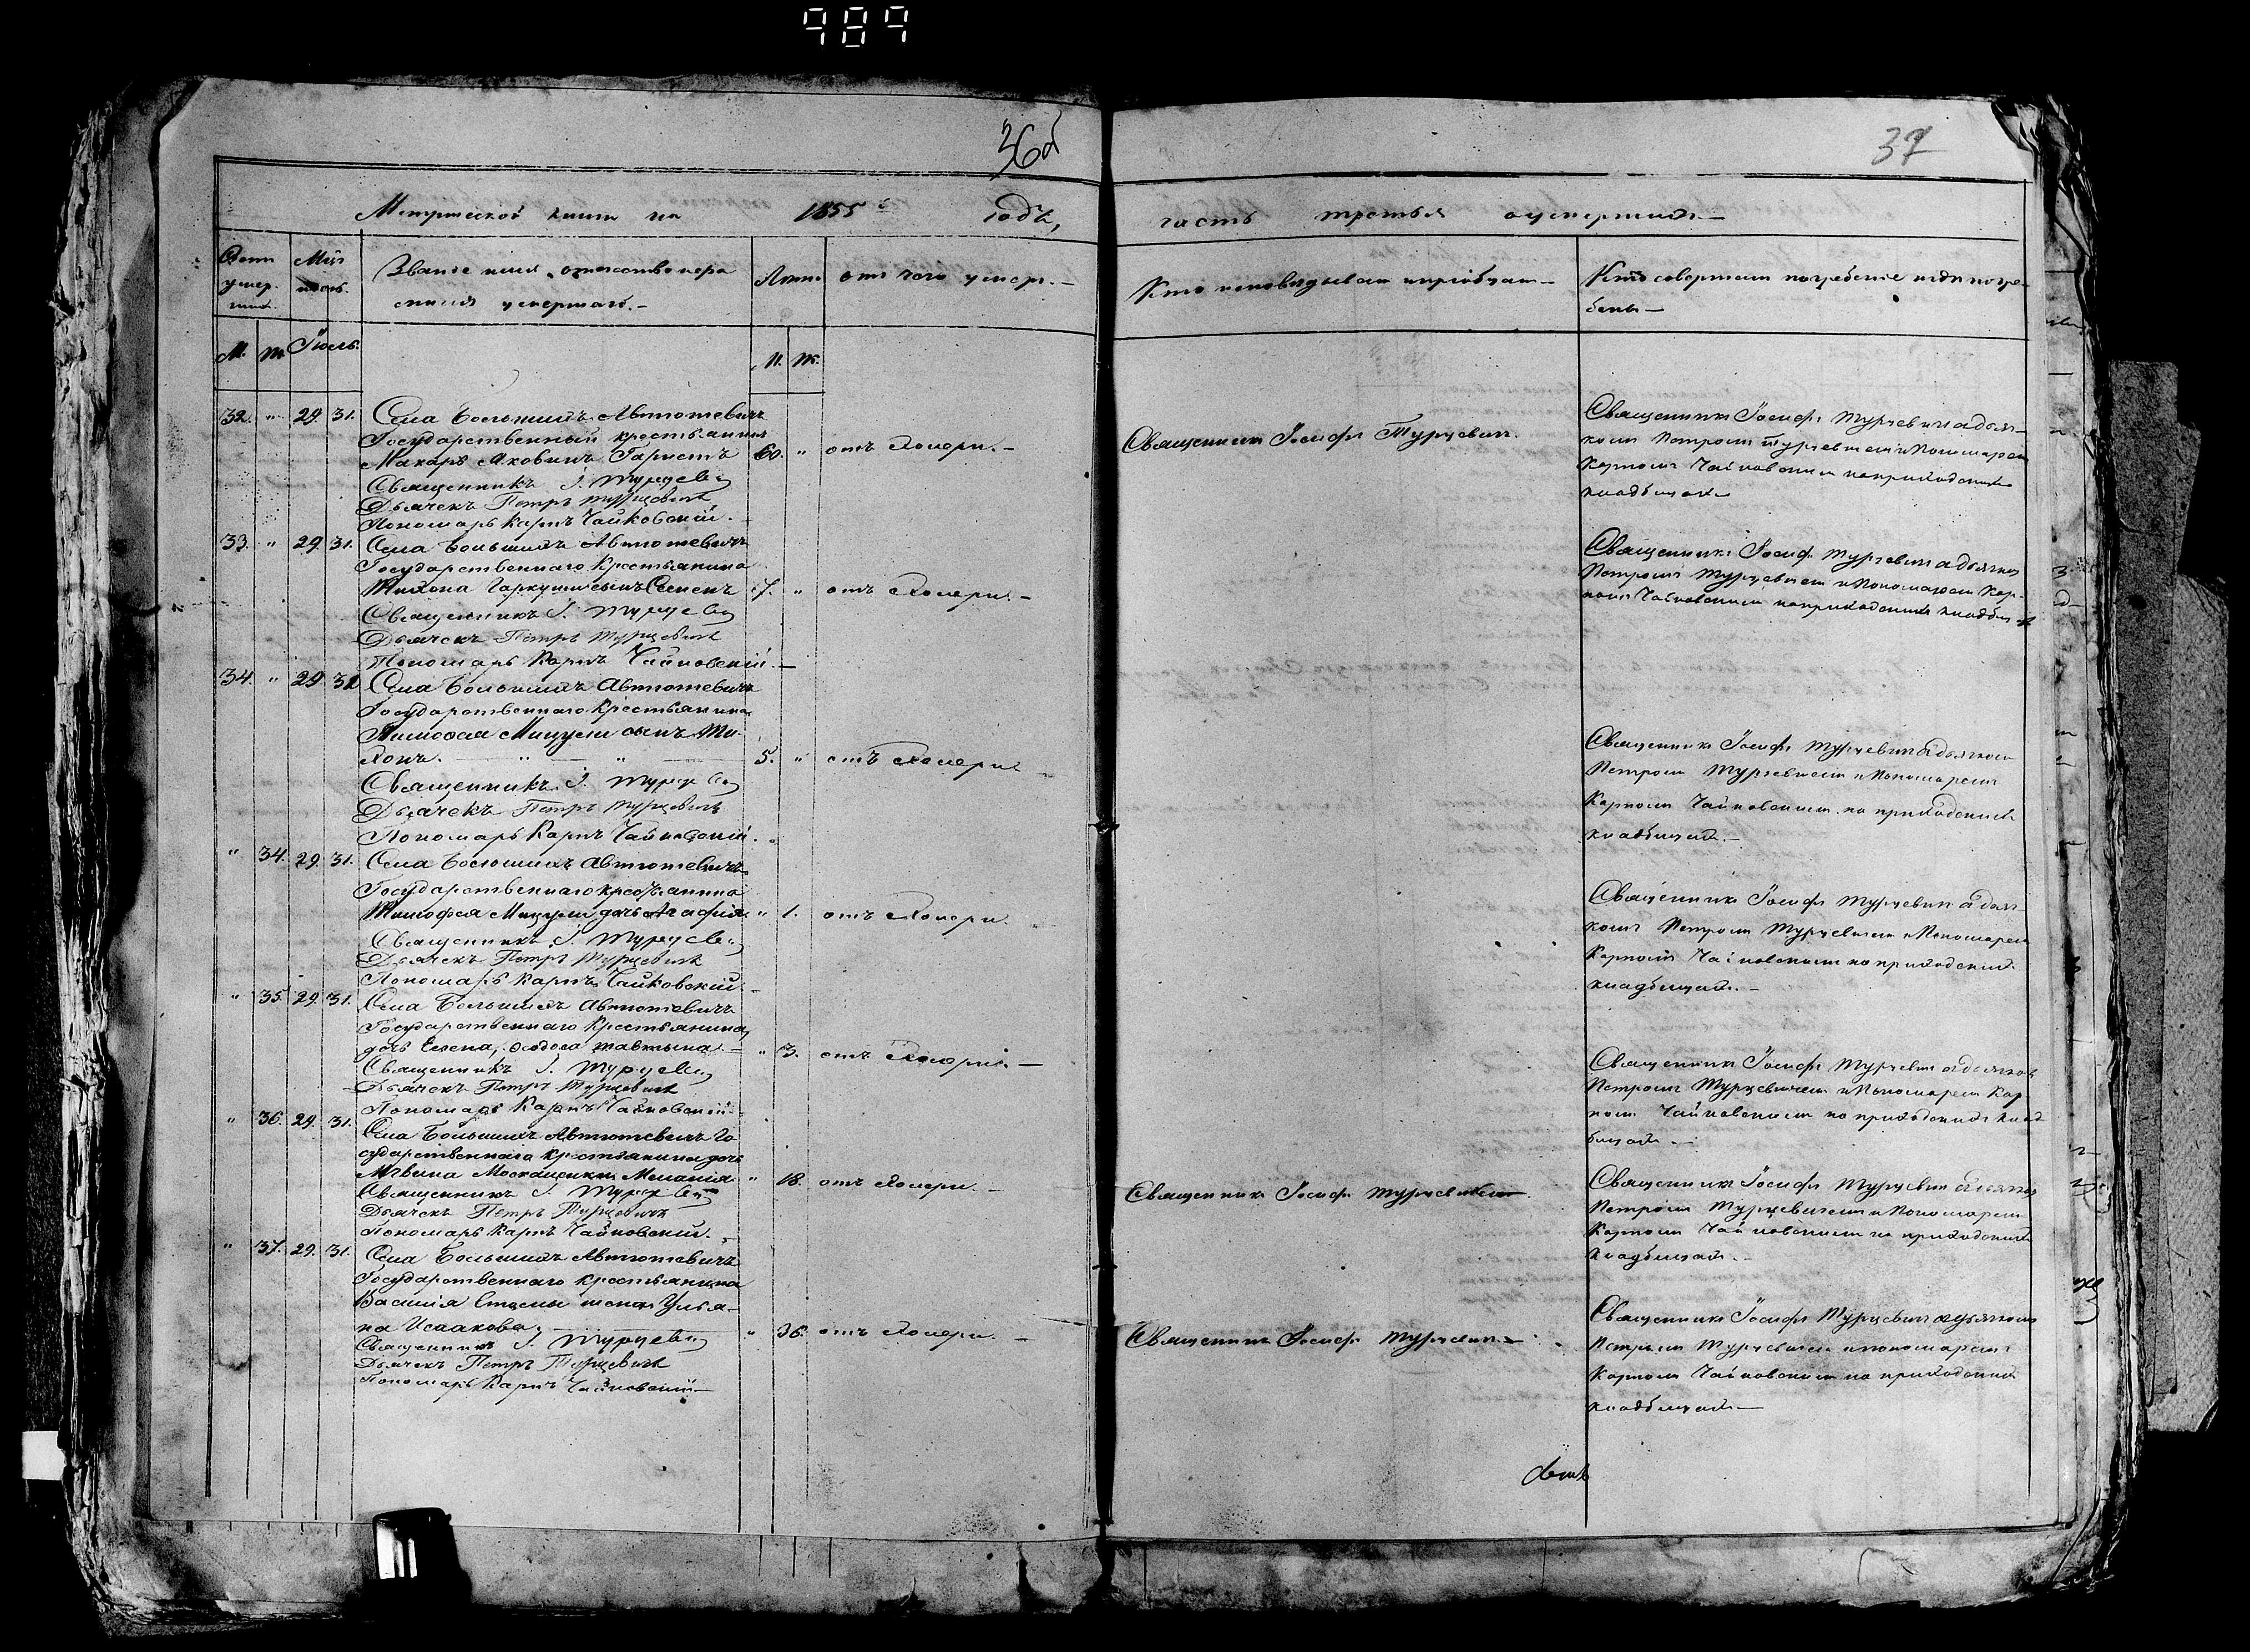 989
36об
37
Метрической книги на 1855 года,
часть третья о умершихъ —
Мѣс
Званіе имя, отчество и фа
милія умершаго. —
Лѣта
отъ чего умеръ. —
Кто исповѣдывалъ и пріобщалъ —
Кто совершалъ погребеніе и гдѣ погре-
бены —
М. Ж. Іюль.
М. Ж.
32. " 29. 31. Села Большихъ Автютевичъ
Государственный крестьянинъ
Макаръ Яковинъ 60. " отъ холеры. —
Священникъ І. Турцевич
Дьячекъ Петръ Турцевичъ
Пономарь Карпъ Чайковскій. —
Священникъ Іосифъ Турцевичъ.
Священникъ Іосифъ Турцевичъ с дьяч-
комъ Петромъ Турцевичемъ и Пономаремъ
Карпомъ Чайковскимъ на приходскихъ
кладбищахъ
33. " 29. 31. Села Большихъ Автютевичъ
Государственнаго Крестьянина
Тихона Гаркуши сынъ Семенъ 7. " отъ холеры. —
Священникъ І. Турцевич
Дьячекъ Петръ Турцевичъ
Пономарь Карпъ Чайковскій. —
Священникъ Іосифъ Турцевичъ с дьячкомъ
Петромъ Турцевичемъ и Пономаремъ Кар-
помъ Чайковскимъ на приходскихъ кладбищахъ
34. " 29. 31 Села Большихъ Автютевичъ
Государственнаго Крестьянина
Тимофея Мицули сынъ Ти-
хонъ. — " — " — 5. " отъ холеры
Священникъ І. Турцевич
Дьячекъ Петръ Турцевичъ
Пономарь Карпъ Чайковскій.
Священникъ Іосифъ Турцевичъ с дьячкомъ
Петромъ Турцевичемъ и Пономаремъ
Карпомъ Чайковскимъ на приходскихъ
кладбищахъ. —
" 34. 29. 31. Села Большихъ Автютевичъ
Государственнаго крестьянина
Тимофея Мицули дочь Агафія " 1. отъ холеры.
Священникъ І. Турцевич
Дьячекъ Петръ Турцевичъ
Пономарь Карпъ Чайковскій
Священникъ Іосифъ Турцевичъ с дьяч-
комъ Петромъ Турцевичемъ и Пономаремъ
Карпомъ Чайковскимъ на приходскихъ
кладбищахъ. —
" 35. 29. 31. Села Большихъ Автютевичъ
Государственнаго Крестьянина
дочь Елена, " 3. отъ холеры. —
Священникъ І. Турцевич
Дьячекъ Петръ Турцевичъ
Пономарь Карпъ Чайковскій
Священникъ Іосифъ Турцевичъ с дьячкомъ
Петромъ Турцевичемъ и Пономаремъ Кар
помъ Чайковскимъ на приходскихъ клад
бищахъ —
" 36. 29. 31. Села Большихъ Автютевичъ Го
сударственнаго Крестьянина дочь
Меланія " 18. отъ холеры. —
Священникъ І. Турцевич
Дьячекъ Петръ Турцевичъ
Пономарь Карпъ Чайковскій.
Священникъ Іосифъ Турцевичъ
Священникъ Іосифъ Турцевичъ с дьячкомъ
Петромъ Турцевичемъ и Пономаремъ
Карпомъ Чайковскимъ на приходскихъ
кладбищахъ. —
" 37. 29. 31. Села Большихъ Автютевичъ
Государственнаго крестьянина
Василія жена Улья-
на Исаакова. — " 36. отъ холеры. —
Священникъ І. Турцевич
Дьячекъ Петръ Турцевичъ
Пономарь Карпъ Чайковскій —
Священникъ Іосифъ Турцевичъ —
Священникъ Іосифъ Турцевичъ с дьячкомъ
Петромъ Турцевичемъ и пономаремъ
Карпомъ Чайковскимъ на приходскихъ
кладбищахъ —